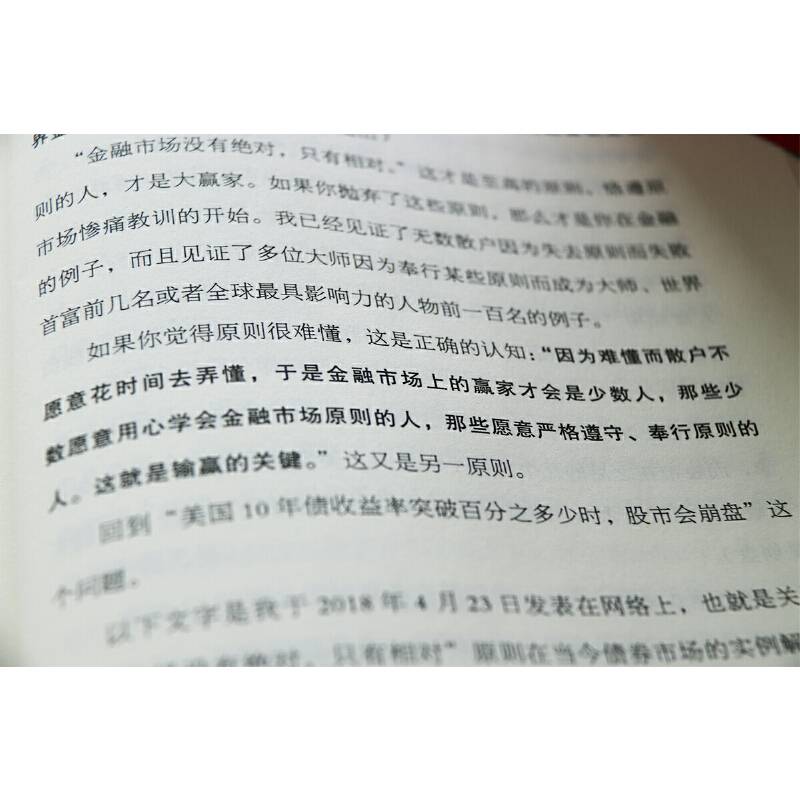 “金融市场没有绝对，只有相对。”这才是至高的原则，悟通原
则的人，才是大赢家。如果你抛弃了这些原则，那么才是你在金融
市场惨痛教训的开始。我已经见证了无数散户因为失去原则而失败
的例子，而且见证了多位大师因为奉行某些原则而成为大师、世界
首富前几名或者全球最具影响力的人物前一百名的例子。
如果你觉得原则很难懂，这是正确的认知：“因为难懂而散户不
愿意花时间去弄懂，于是金融市场上的赢家才会是少数人，那些少
数愿意用心学会金融市场原则的人，那些愿意严格遵守、奉行原则的
人。这就是输赢的关键。”这又是另一原则。
回到“美国 10 年债收益率突破百分之多少时，股市会崩盘”这
个问题。
以下文字是我于 2018 年 4 月 23 日发表在网络上，也就是关
没有绝对，只有相对”原则在当今债券市场的实例解